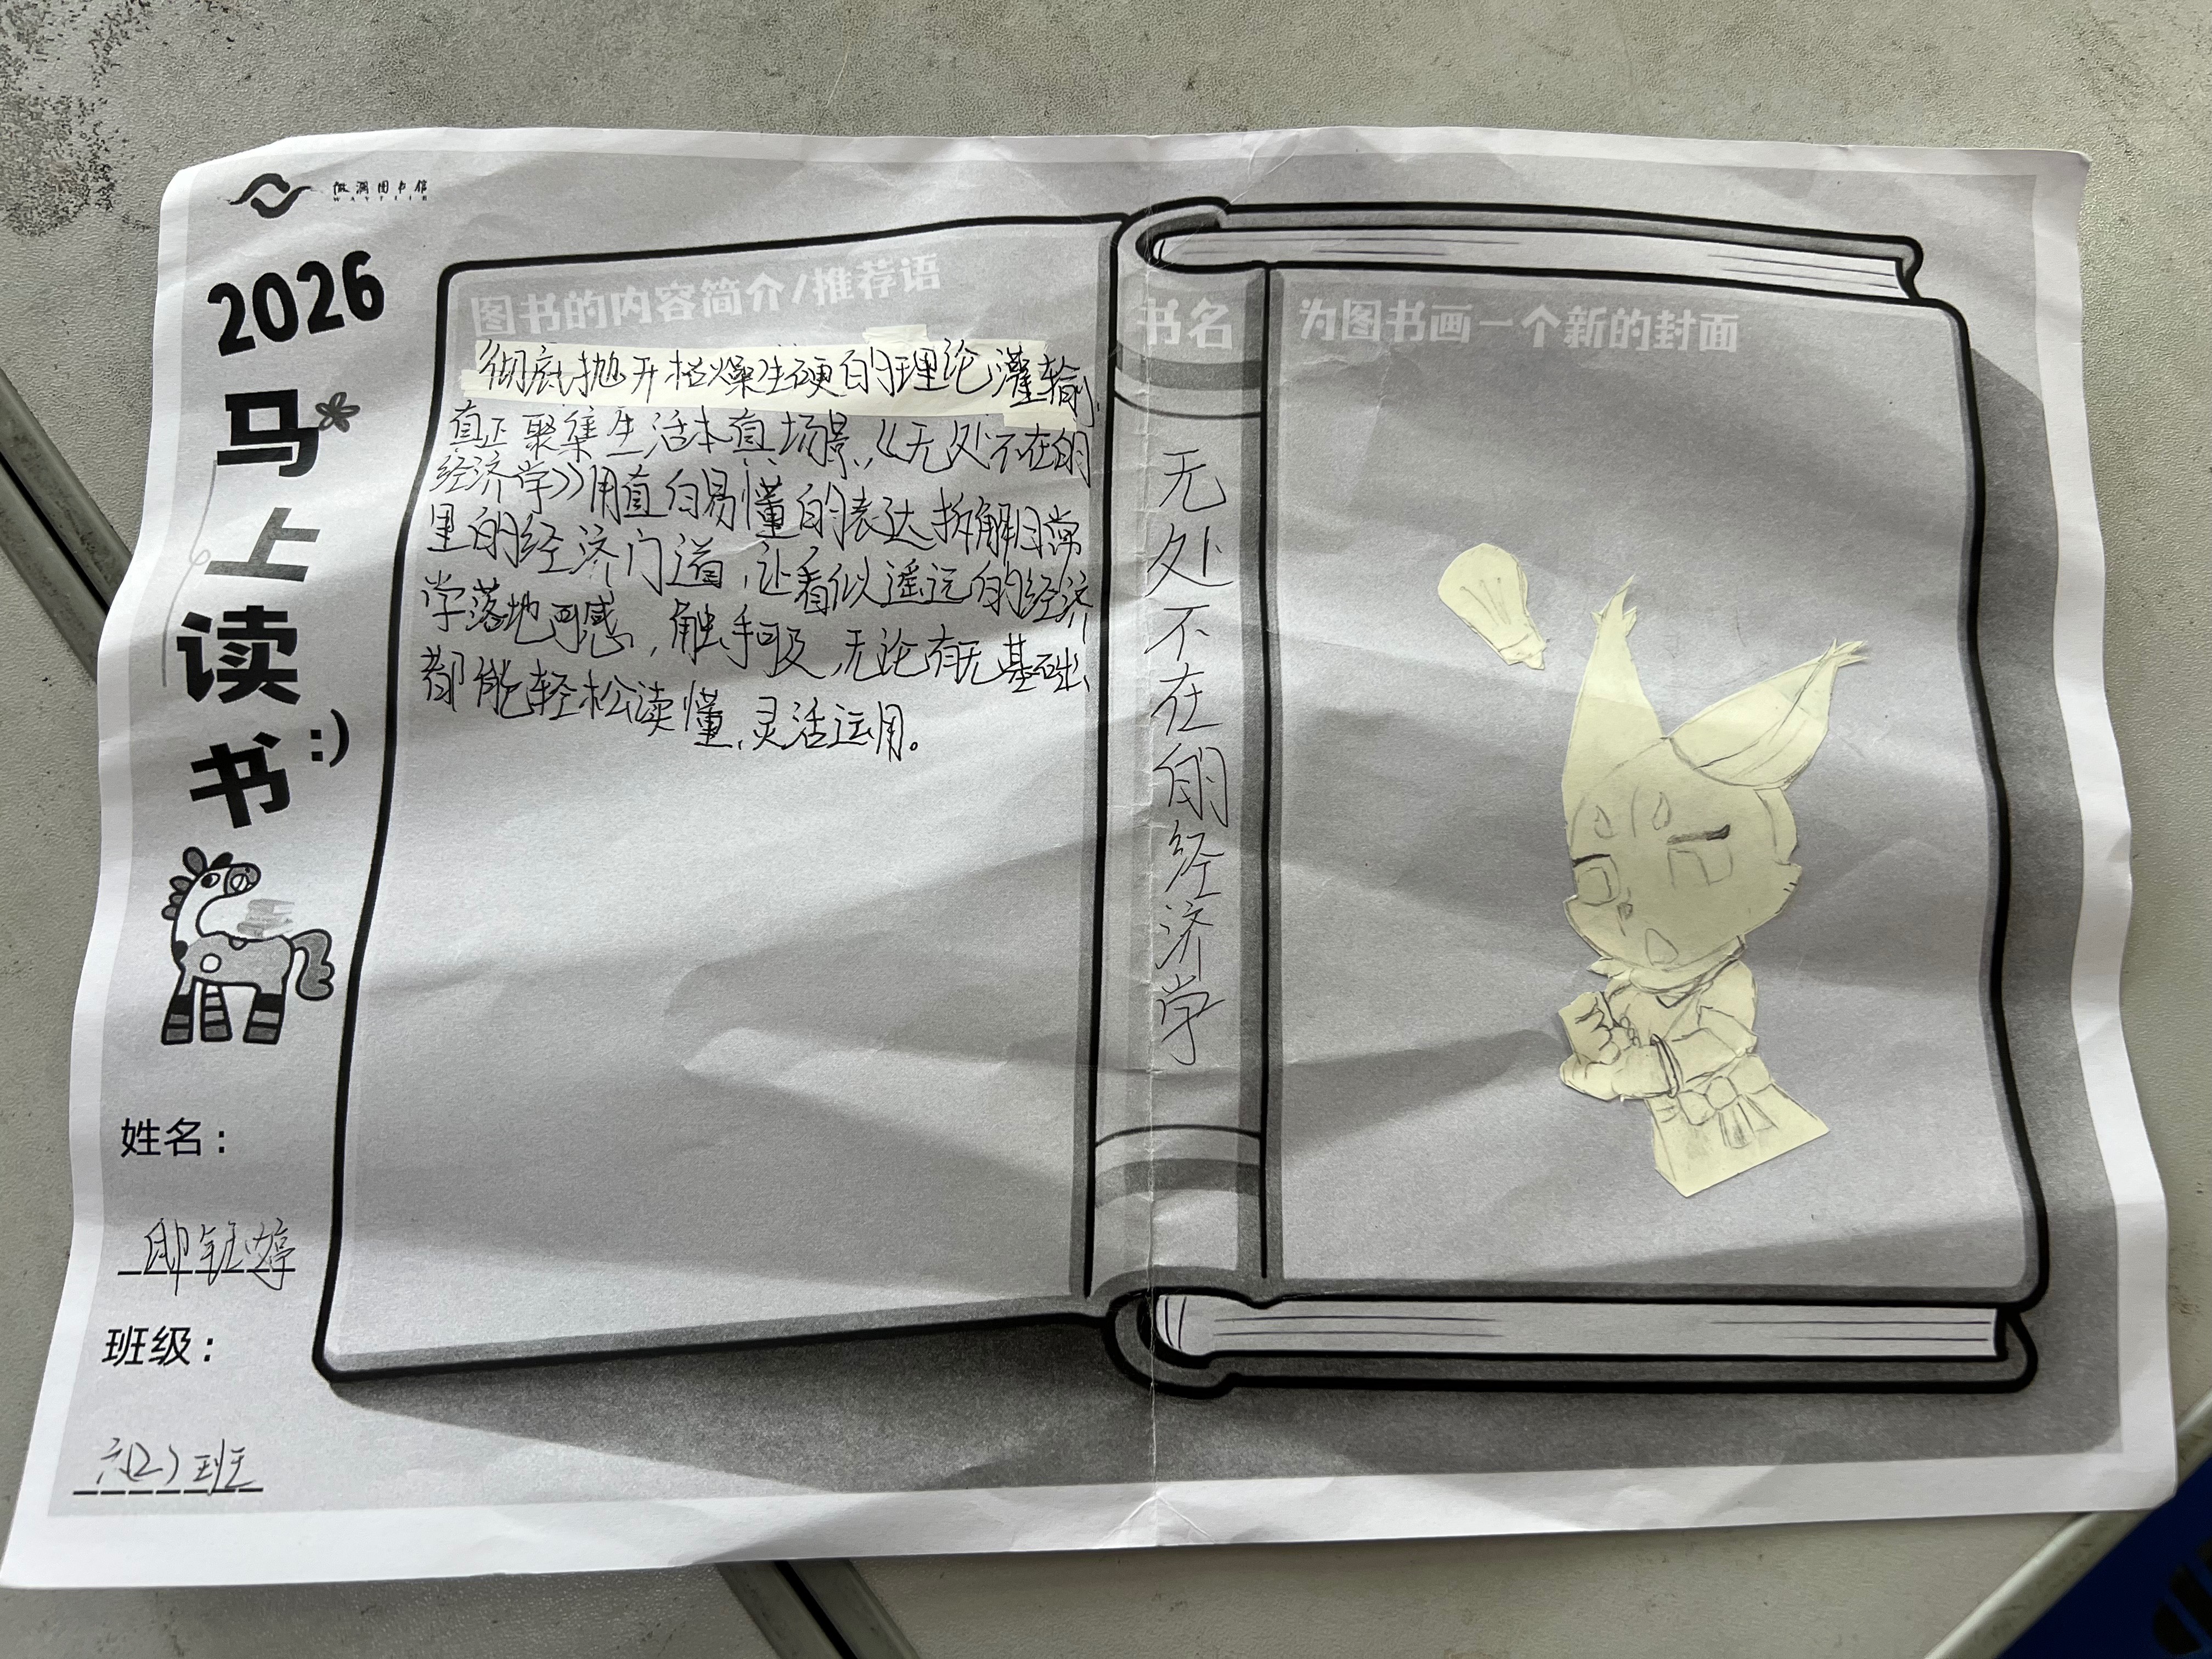 微澜图书馆
2026
马上读书:)
姓名：
班级：
六(2)班
图书的内容简介/推荐语
彻底抛开枯燥生硬的理论灌输,
真正聚集生活本真场景,《无处不在的
经济学》用直白易懂的表达拆解日常
里的经济门道,让看似遥远的经济
学落地可感,触手可及,无论有无基础
都能轻松读懂,灵活运用。
书名
无处不在的经济学
为图书画一个新的封面